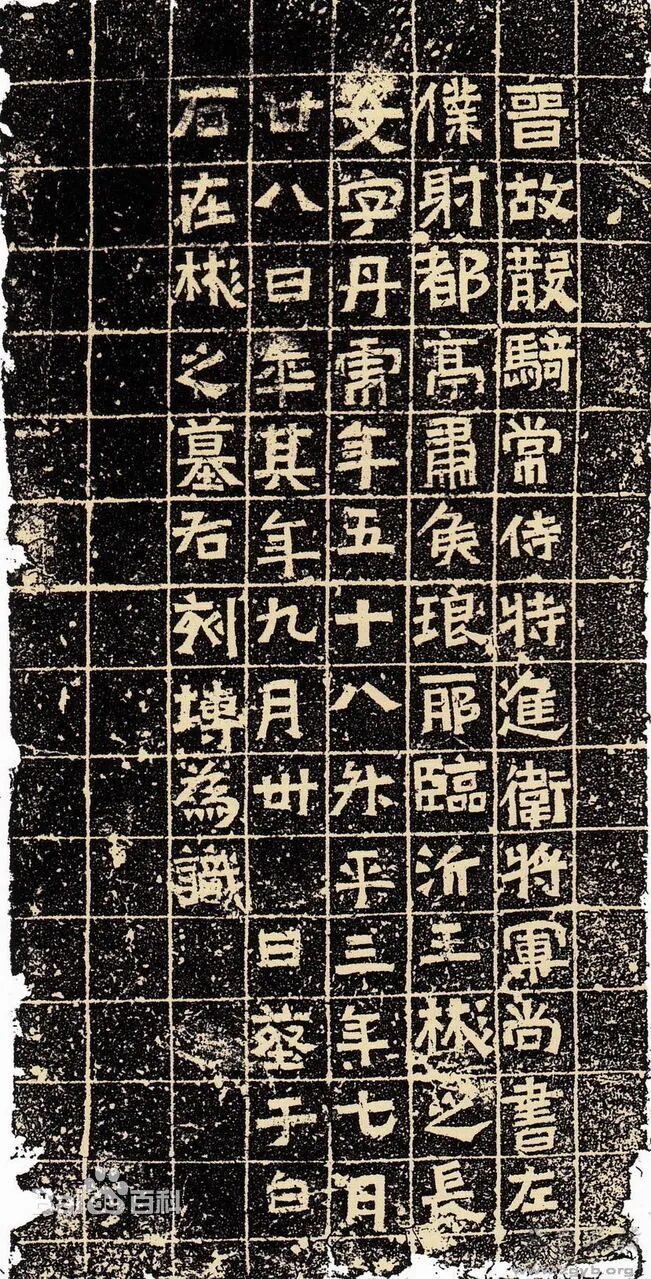 晉故散騎常侍特進衛將軍尚書左
僕射都亭肅侯琅耶臨沂王彬之長
女字丹虎年五十八升平三年七月
廿八日卒其年九月卅日葬于白
石在彬之墓右刻塼為識
Baidu百科